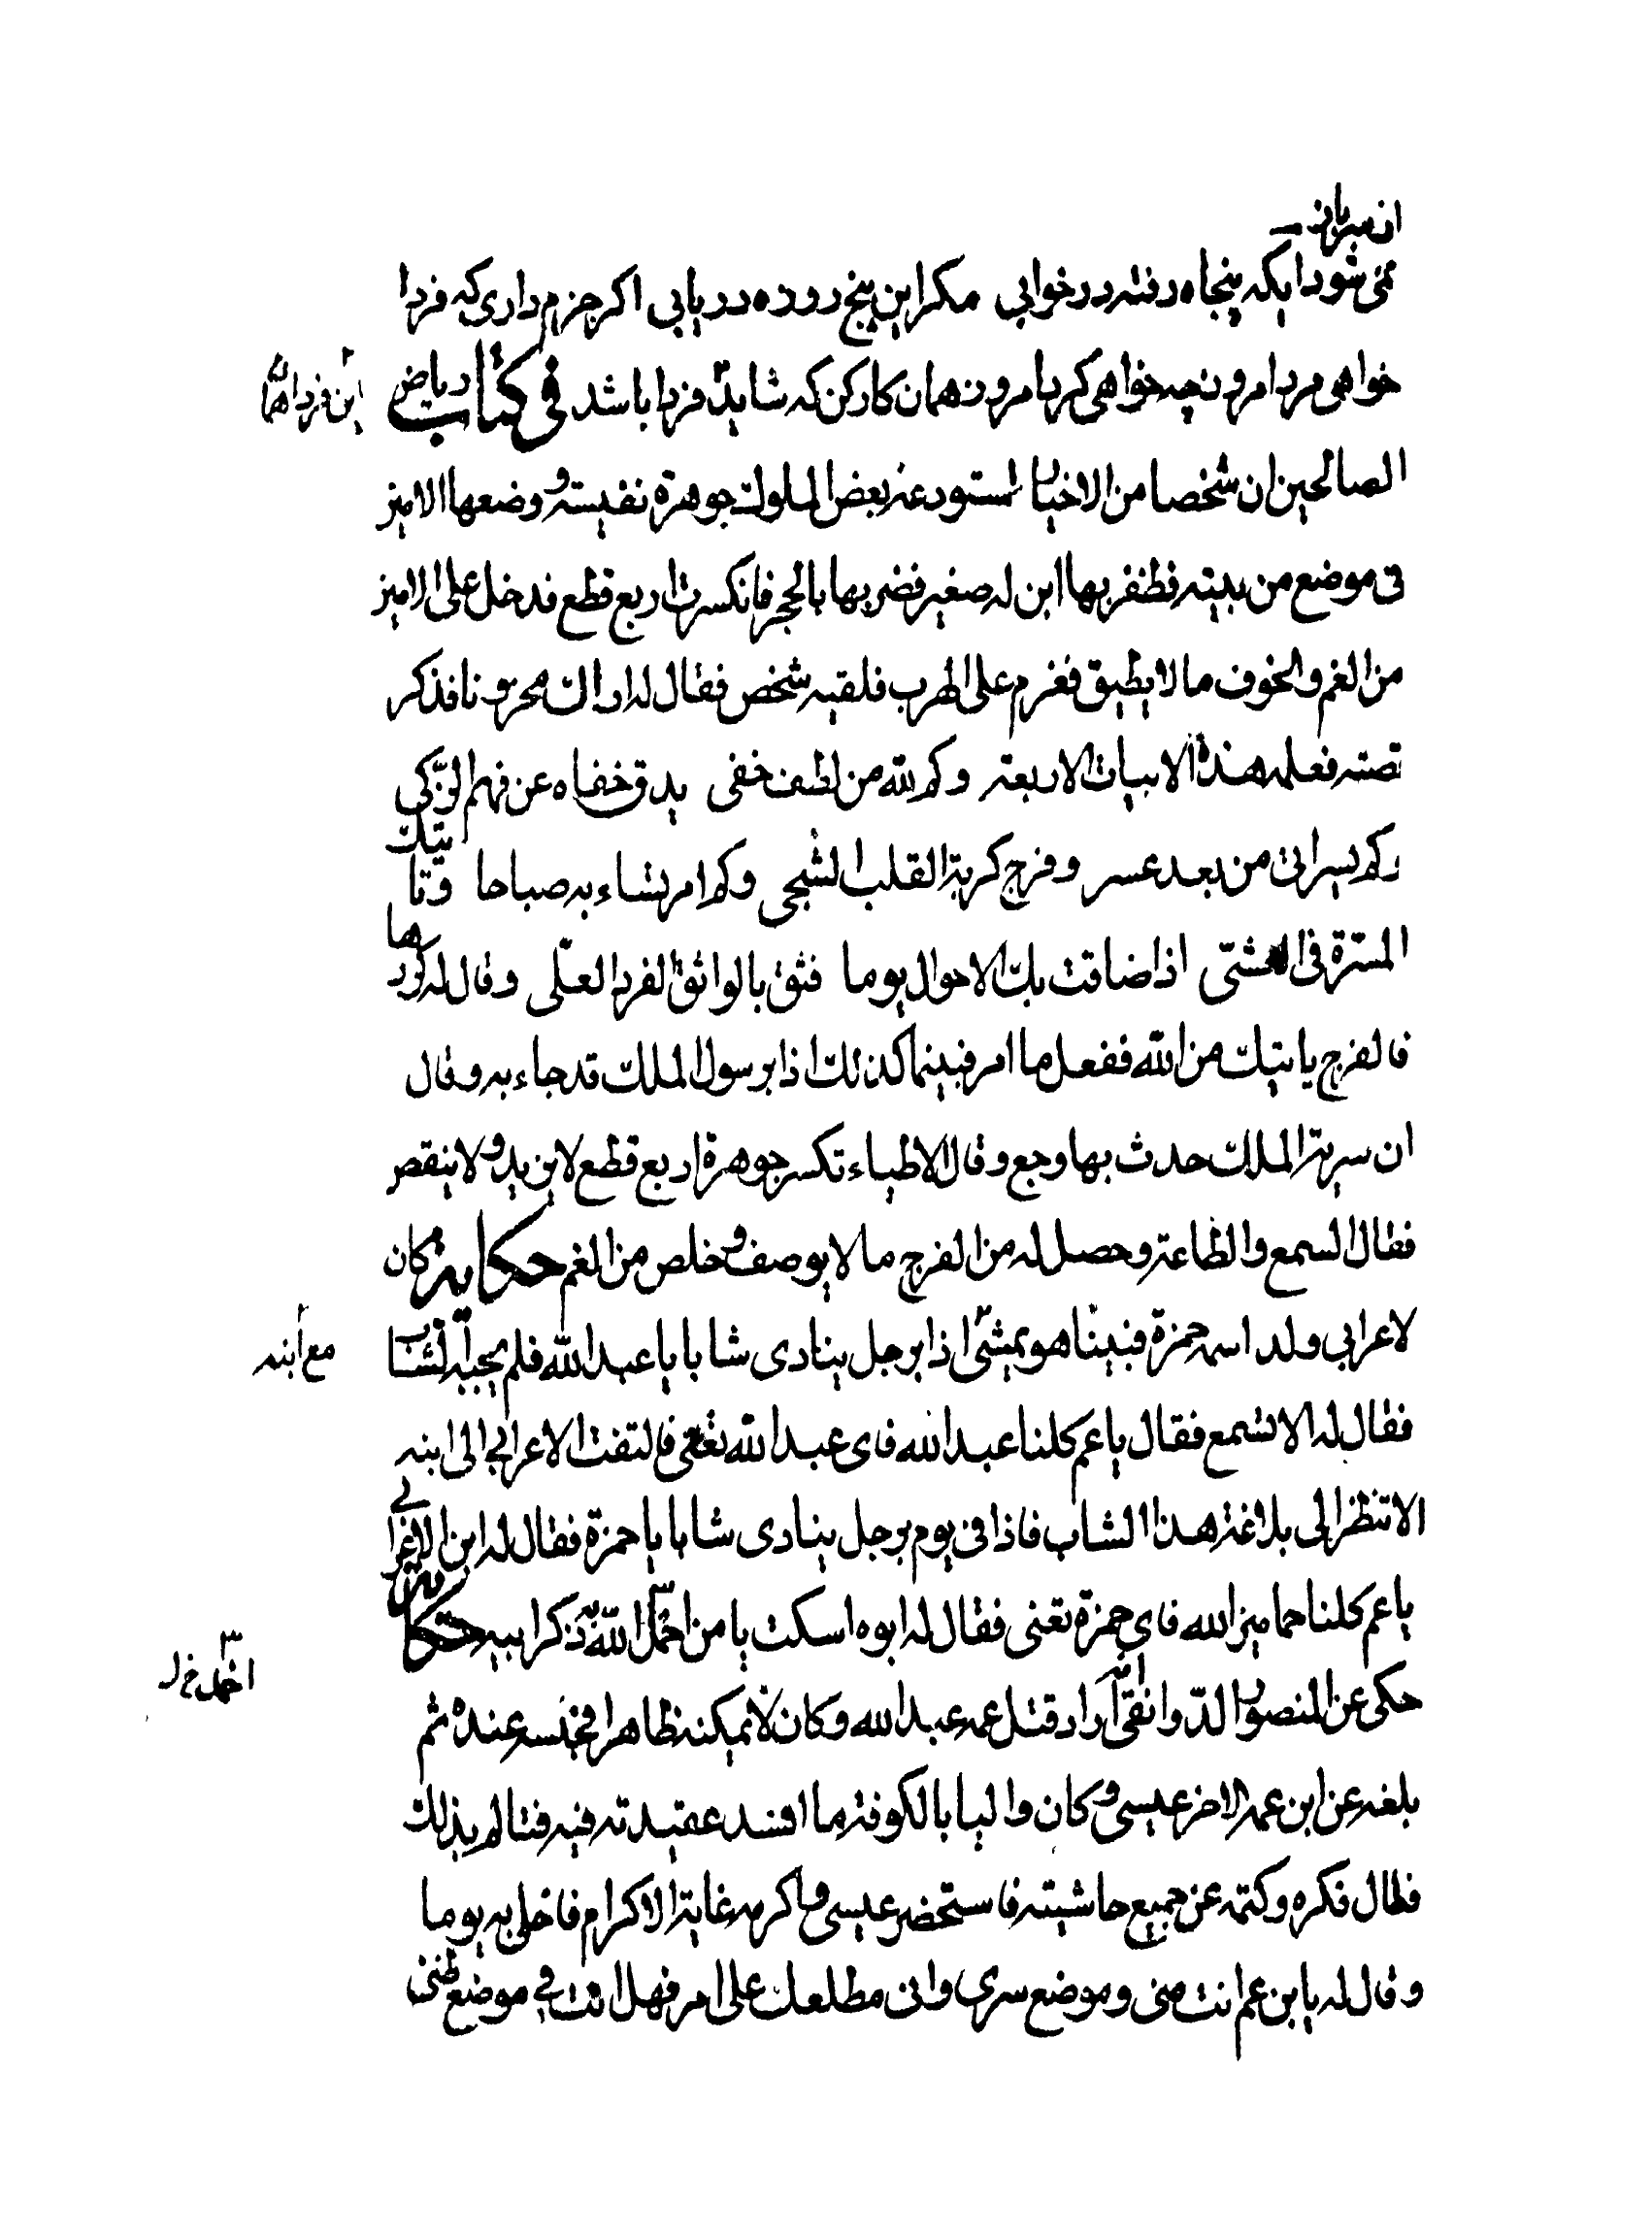 نمی شود ایکه پنجاه رفت و در خوابی مکر این پنج روزه دریابی اکر جزم داری که فردا
خواهی مرد امروز چه خواهی کرد امروز همان کار کن که شاید فردا باشد فی کتاب ریاض
الصالحین ان شخصا من الاخیار استودعه بعض الملوك جوهرة نفیسة ووضعها الامین
فی موضع من بیته فظفر بها ابن له صغیر فضربها بالحجر فانکسرت اربع قطع فدخل علی الامین
من الغم والخوف ما لا یطیق فعزم علی الهرب فلقیه شخص فقال له اراك محزونا فذکر
قصته فعلمه هذه الابیات الاربعة وکم لله من لطف خفی یدق خفاه عن فهم الزکی
وکم یسر اتی من بعد عسر وفرج کربة القلب الشجی وکم امر تساء به صباحا وتاتیك
المسرة فی العشی اذا ضاقت بك الاحوال یوما فثق بالواثق الفرد العلی وقال له کررها
فالفرج یاتیك من الله ففعل ما امر فبینما کذلك اذا برسول الملك قد جاء به وقال
ان سریة الملك حدث بها وجع وقال الاطباء تکسر جوهرة اربع قطع لا یزید ولا ینقص
فقال السمع والطاعة وحصل له من الفرج ما لا یوصف وخلص من الغم حکایة کان
لاعرابی ولد اسمه حمزة فبینا هو یمشی اذا برجل ینادی شابا یا عبد الله فلم یجبه الشاب
مع ابنه
فقال له الا تسمع فقال یا عم کلنا عبد الله فای عبد الله تعنی فالتفت الاعرابی الی ابنه
الا تنظر الی بلاغة هذا الشاب فاذا فی یوم برجل ینادی شابا یا حمزة فقال له ابن الاعرابی
یا عم کلنا حمامیز الله فای حمزة تعنی فقال له ابوه اسکت یا من اخمل الله به ذکر ابیه حکایة
اخمد خ ل
حکی عن المنصور الدوانقی انه اراد قتل عمه عبد الله وکان لا یمکنه ظاهرا فحبسه عنده ثم
بلغه عن ابن عمه الاخر عیسی وکان والیا بالکوفة ما افسد عقیدته فیه فتالم بذلك
فطال فکره وکتمه عن جمیع حاشیته فاستحضر عیسی واکرمه غایة الاکرام فاخلی به یوما
وقال له یا بن عم انت منی وموضع سری وانی مطلعك علی امر فهل انت فی موضع ظنی